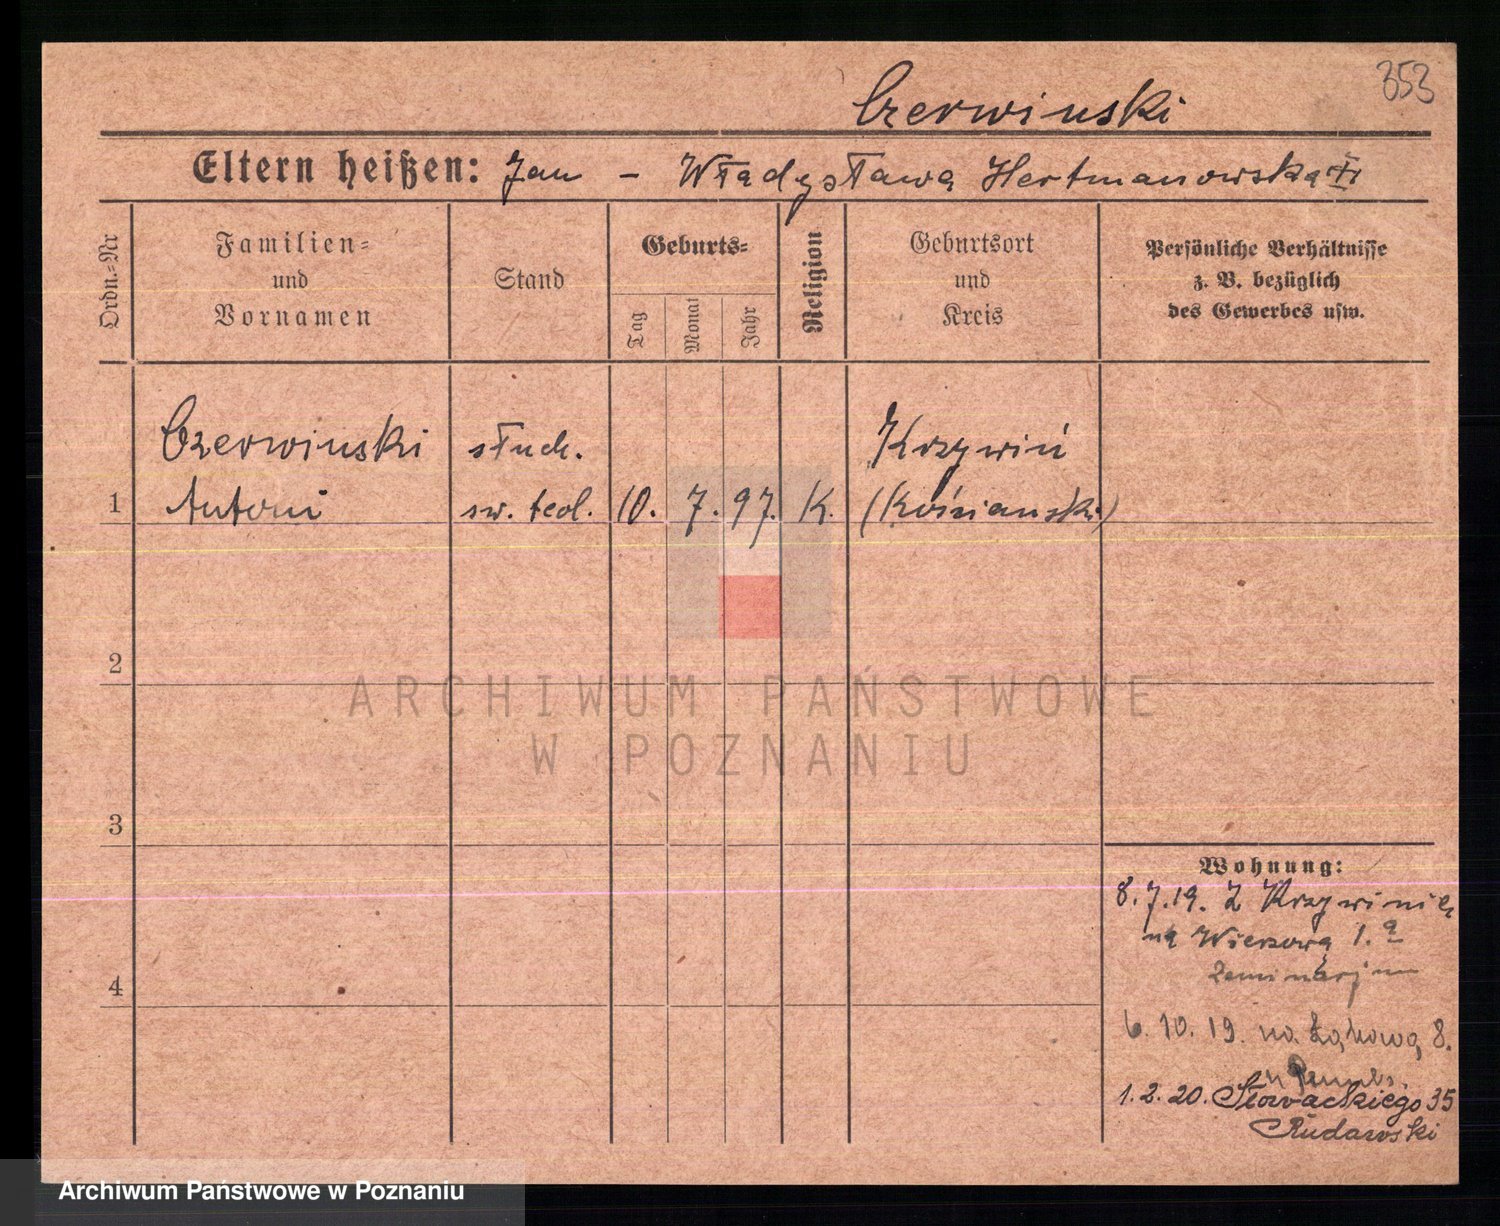 353
Czerwinski
Eltern heißen: Jan - Władysława Hertmanowska
Ordn.=Nr
Familien=
und
Vornamen
Stand
Geburts=
Tag
Monat
Jahr
Religion
Geburtsort
und
Kreis
Persönliche Verhältnisse
z. B. bezüglich
des Gewerbes usw.
Czerwinski słuch. Krzywiń
1 Antoni sw. teol. 10. 7. 97. K. (Kościanski)
2
ARCHIWUM PAŃSTWOWE
W POZNANIU
3
4
Wohnung:
8.7.19. Z Krzywinia
na Wieżową 1.a
Seminarjum
6.10.19. na Łąkową 8.
1.2.20. Słowackiego 35
Rudawski
Archiwum Państwowe w Poznaniu